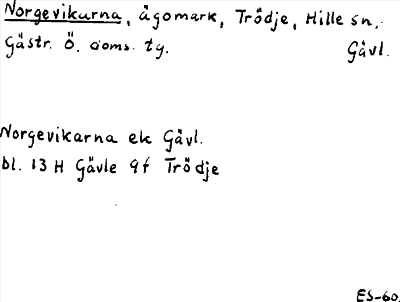 Norgevikarna, ägomark, Trödje, Hille sn,
Gästr. Ö. doms. tg. Gävl.
Norgevikarna ek Gävl.
bl. 13 H Gävle 9f Trödje
ES-60